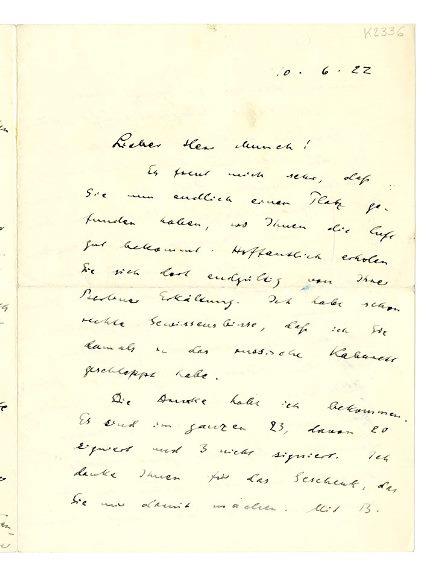 K2336
0. 6. 22
Lieber Herr Munch!
Es freut mich sehr, daß
Sie nun endlich einen Platz ge-
funden haben, wo Ihnen die Luft
gut bekommt. Hoffentlich erholen
Sie sich dort endgültig von Ihrer
Berliner Erkältung. Ich habe schon
rechte Gewissensbisse, daß ich Sie
damals in das russische Kabarett
geschleppt habe.
Die Drucke habe ich bekommen.
Es sind im ganzen 23, davon 20
signiert und 3 nicht signiert. Ich
danke Ihnen für das Geschenk, das
Sie mir damit machen. Mit B.